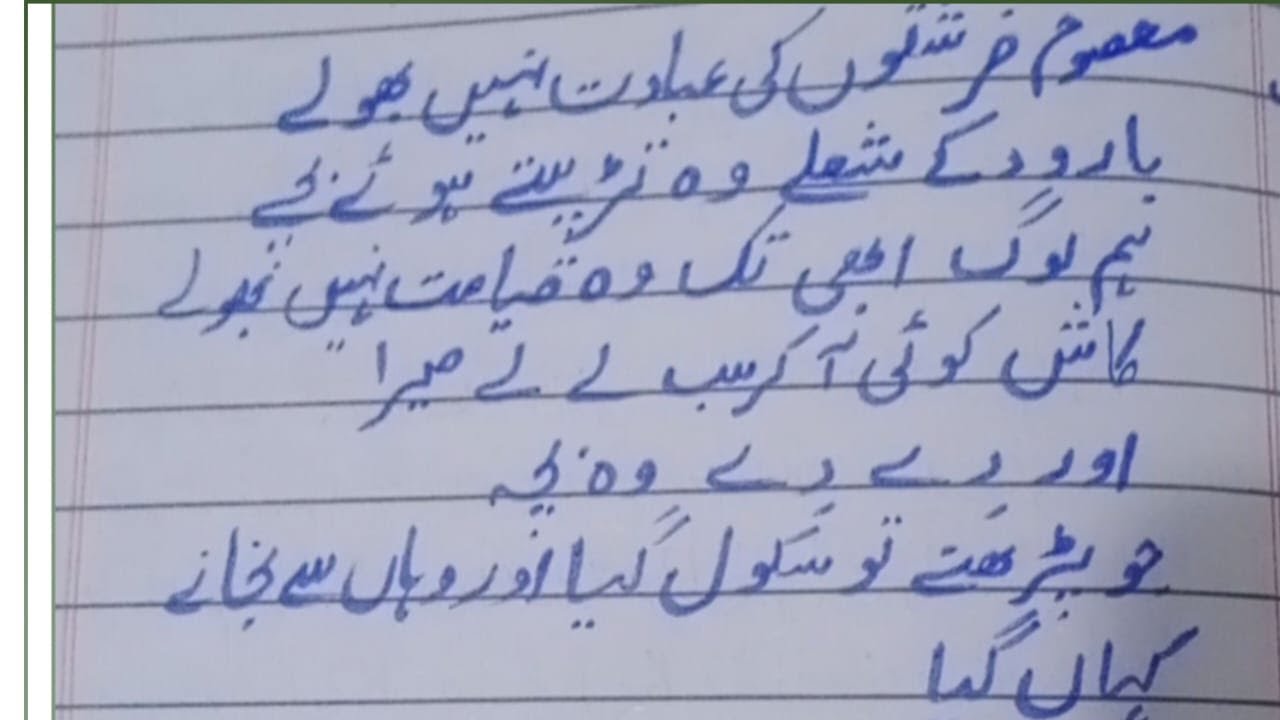 معصوم فرشتوں کی عبادت نہیں بھولے
بارود کے شعلے وہ تڑپتے ہوئے بچے
ہم لوگ ابھی تک وہ قیامت نہیں بھولے
کاش کوئی آ کر سب لے لے میرا
اور دے دے وہ بچہ
جو پڑھنے تو سکول گیا اور وہاں سے نجانے
کہاں گیا